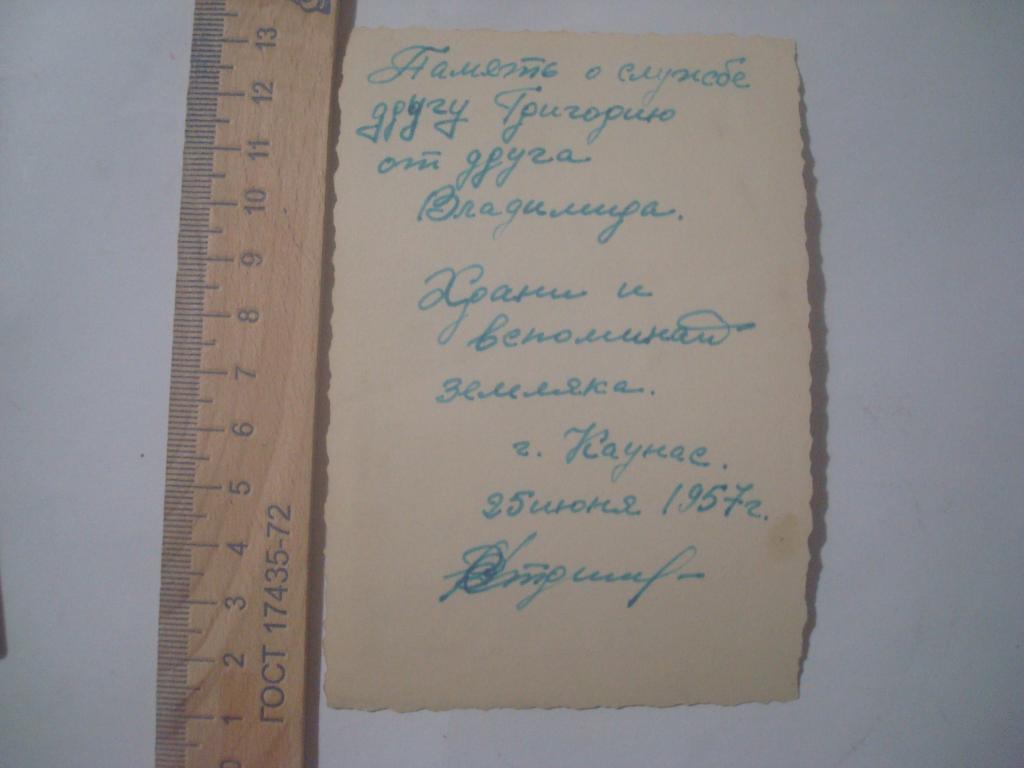 Память о службе
другу Григорию
от друга
Владимира.
Храни и
вспоминай
земляка.
г. Каунас.
25 июня 1957 г.
13
12
11
10
9
8
7
6
5
4
3
2
1
0
ГОСТ 17435-72